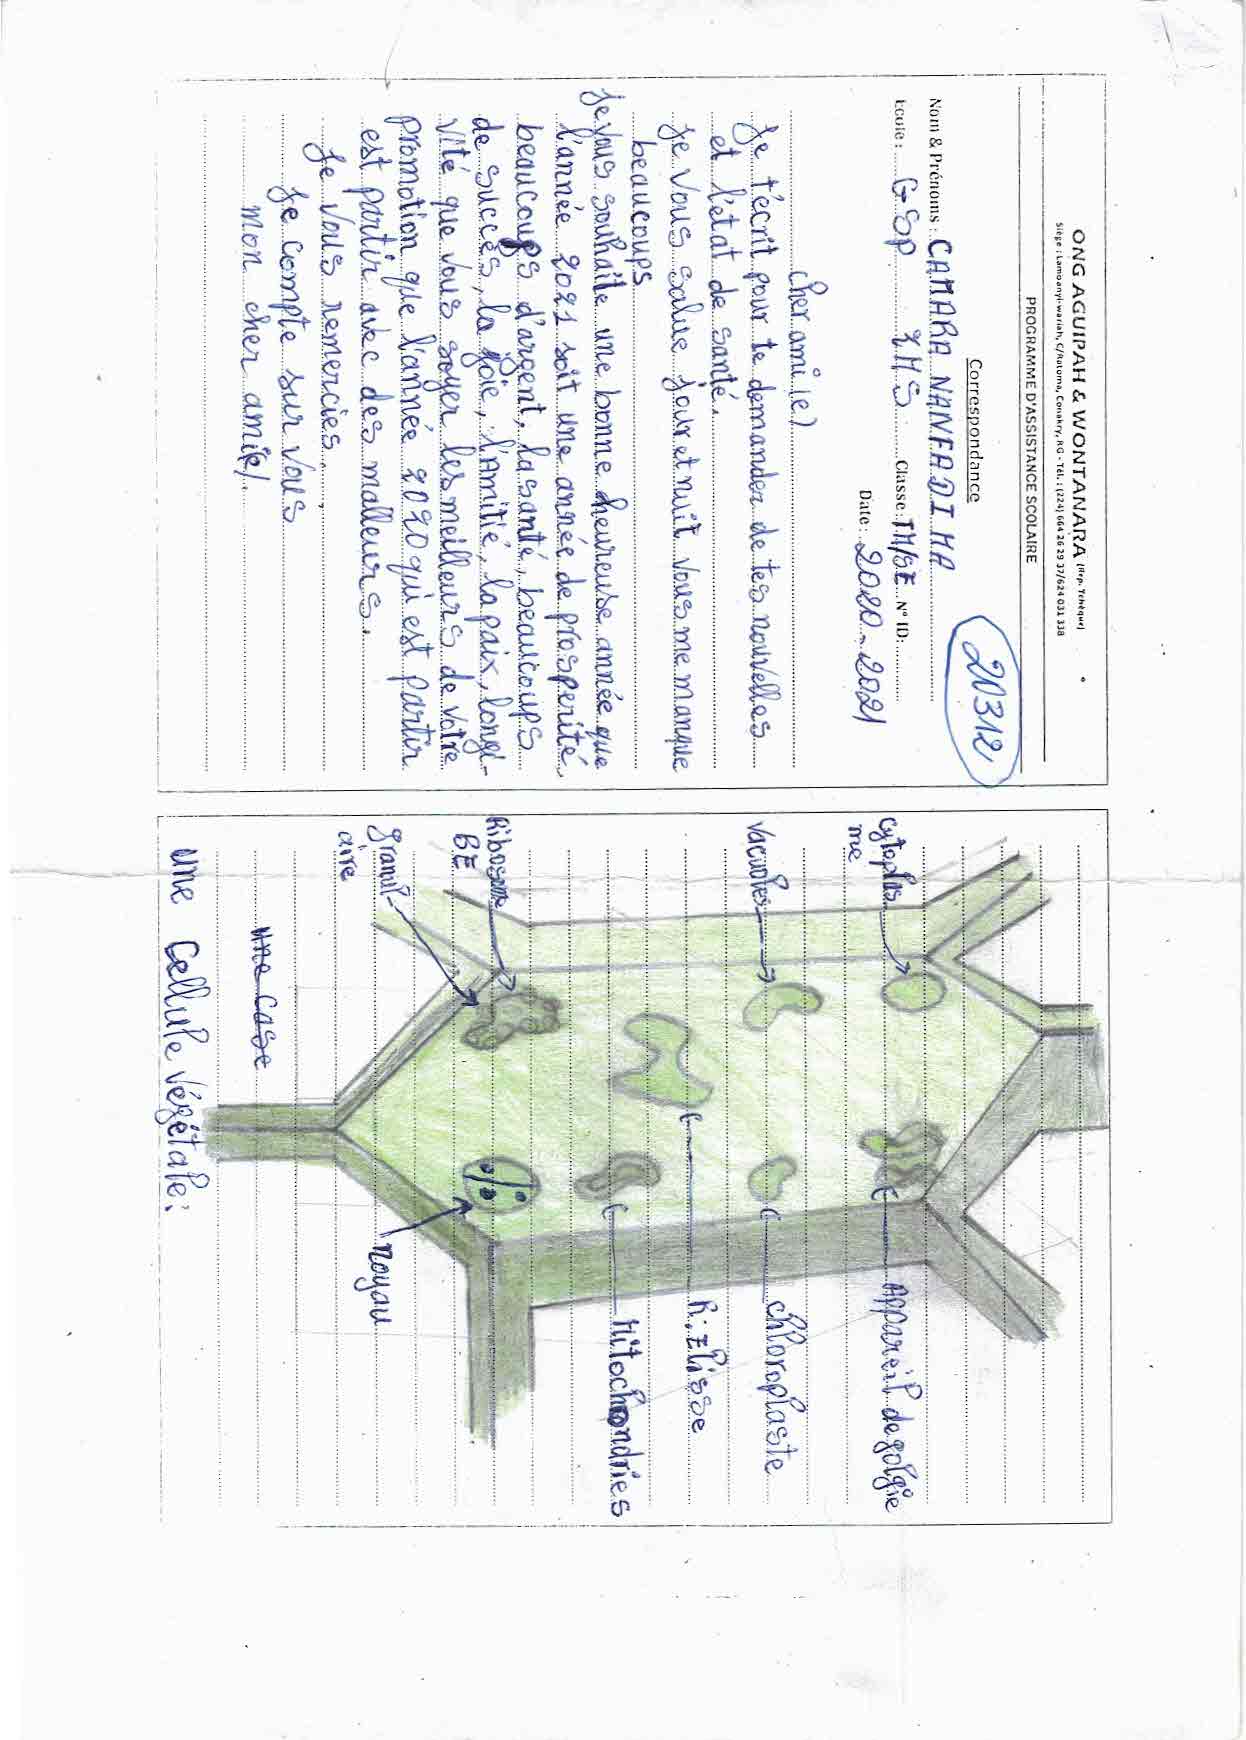 ONG AGUIPAH & WONTANARA (Rép. Tchèque)
Siège : Lamoanyi-wariah, C/Ratoma, Conakry, RG - Tél. : (224) 664 26 29 37/624 031 338
PROGRAMME D'ASSISTANCE SCOLAIRE
Correspondance
20312
Nom & Prénoms : CAMARA NANFADIMA
Ecole : GSP HMS Classe : TM/SE N° ID:
Date : 2020-2021
cher ami(e)
Je t'écrit pour te demander de tes nouvelles
et l'état de santé.
Je vous salue jour et nuit vous me manque
beaucoups
Je vous souhaite une bonne heureuse année que
l'année 2021 soit une année de prosperité,
beaucoups d'argent, la santé, beaucoups
de succès, la joie, l'Amitié, la paix, longi-
vité que vous soyer les meilleurs de votre
promotion que l'année 2020 qui est partir
est partir avec des malleurs.
Je vous remercies.
Je compte sur vous
mon cher ami(e).
cytoplas
me
Appareil de golgie
Vacuoles
chloroplaste
R.E lisse
Mitochondries
Ribosome
BE
granul-
aire
noyau
une case
une Cellule végétale: